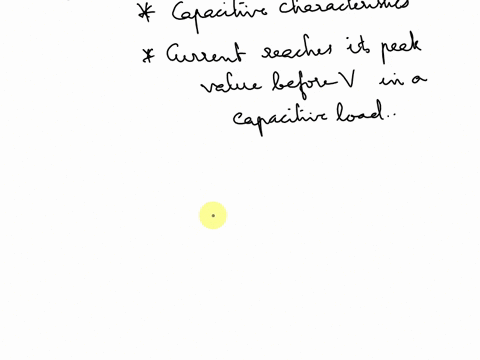 * Capacitive characteristics
* Current reaches its peak
value before V in a
capacitive load..